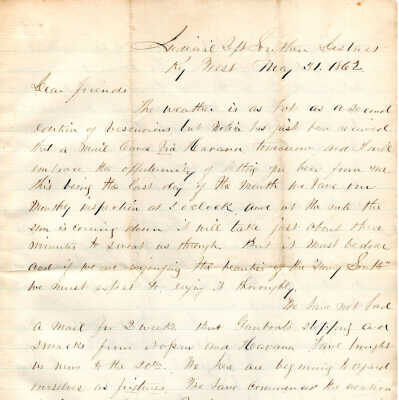 Key West May 31. 1862
Dear friends
The weather is as hot as a second
edition of Vesuvious but notice has just been received
that a mail leaves via Havana tomorrow and I will
embrace the opportunity of letting you hear from me
This being the last day of the Month we have our
Monthly inspection at 2 oclock and at the rate the
sun is coming down it will take just about three
minutes to sweat us through. But it must be done
and if we are enjoying the beauties of the "Sunny South"
we must expect to enjoy it thoroughly.
We have not had
a mail for 2 weeks but and
from and Havana have brought
us news to the 20th. We here are beginning to regard
ourselves as fixtures. We have commenced the erection